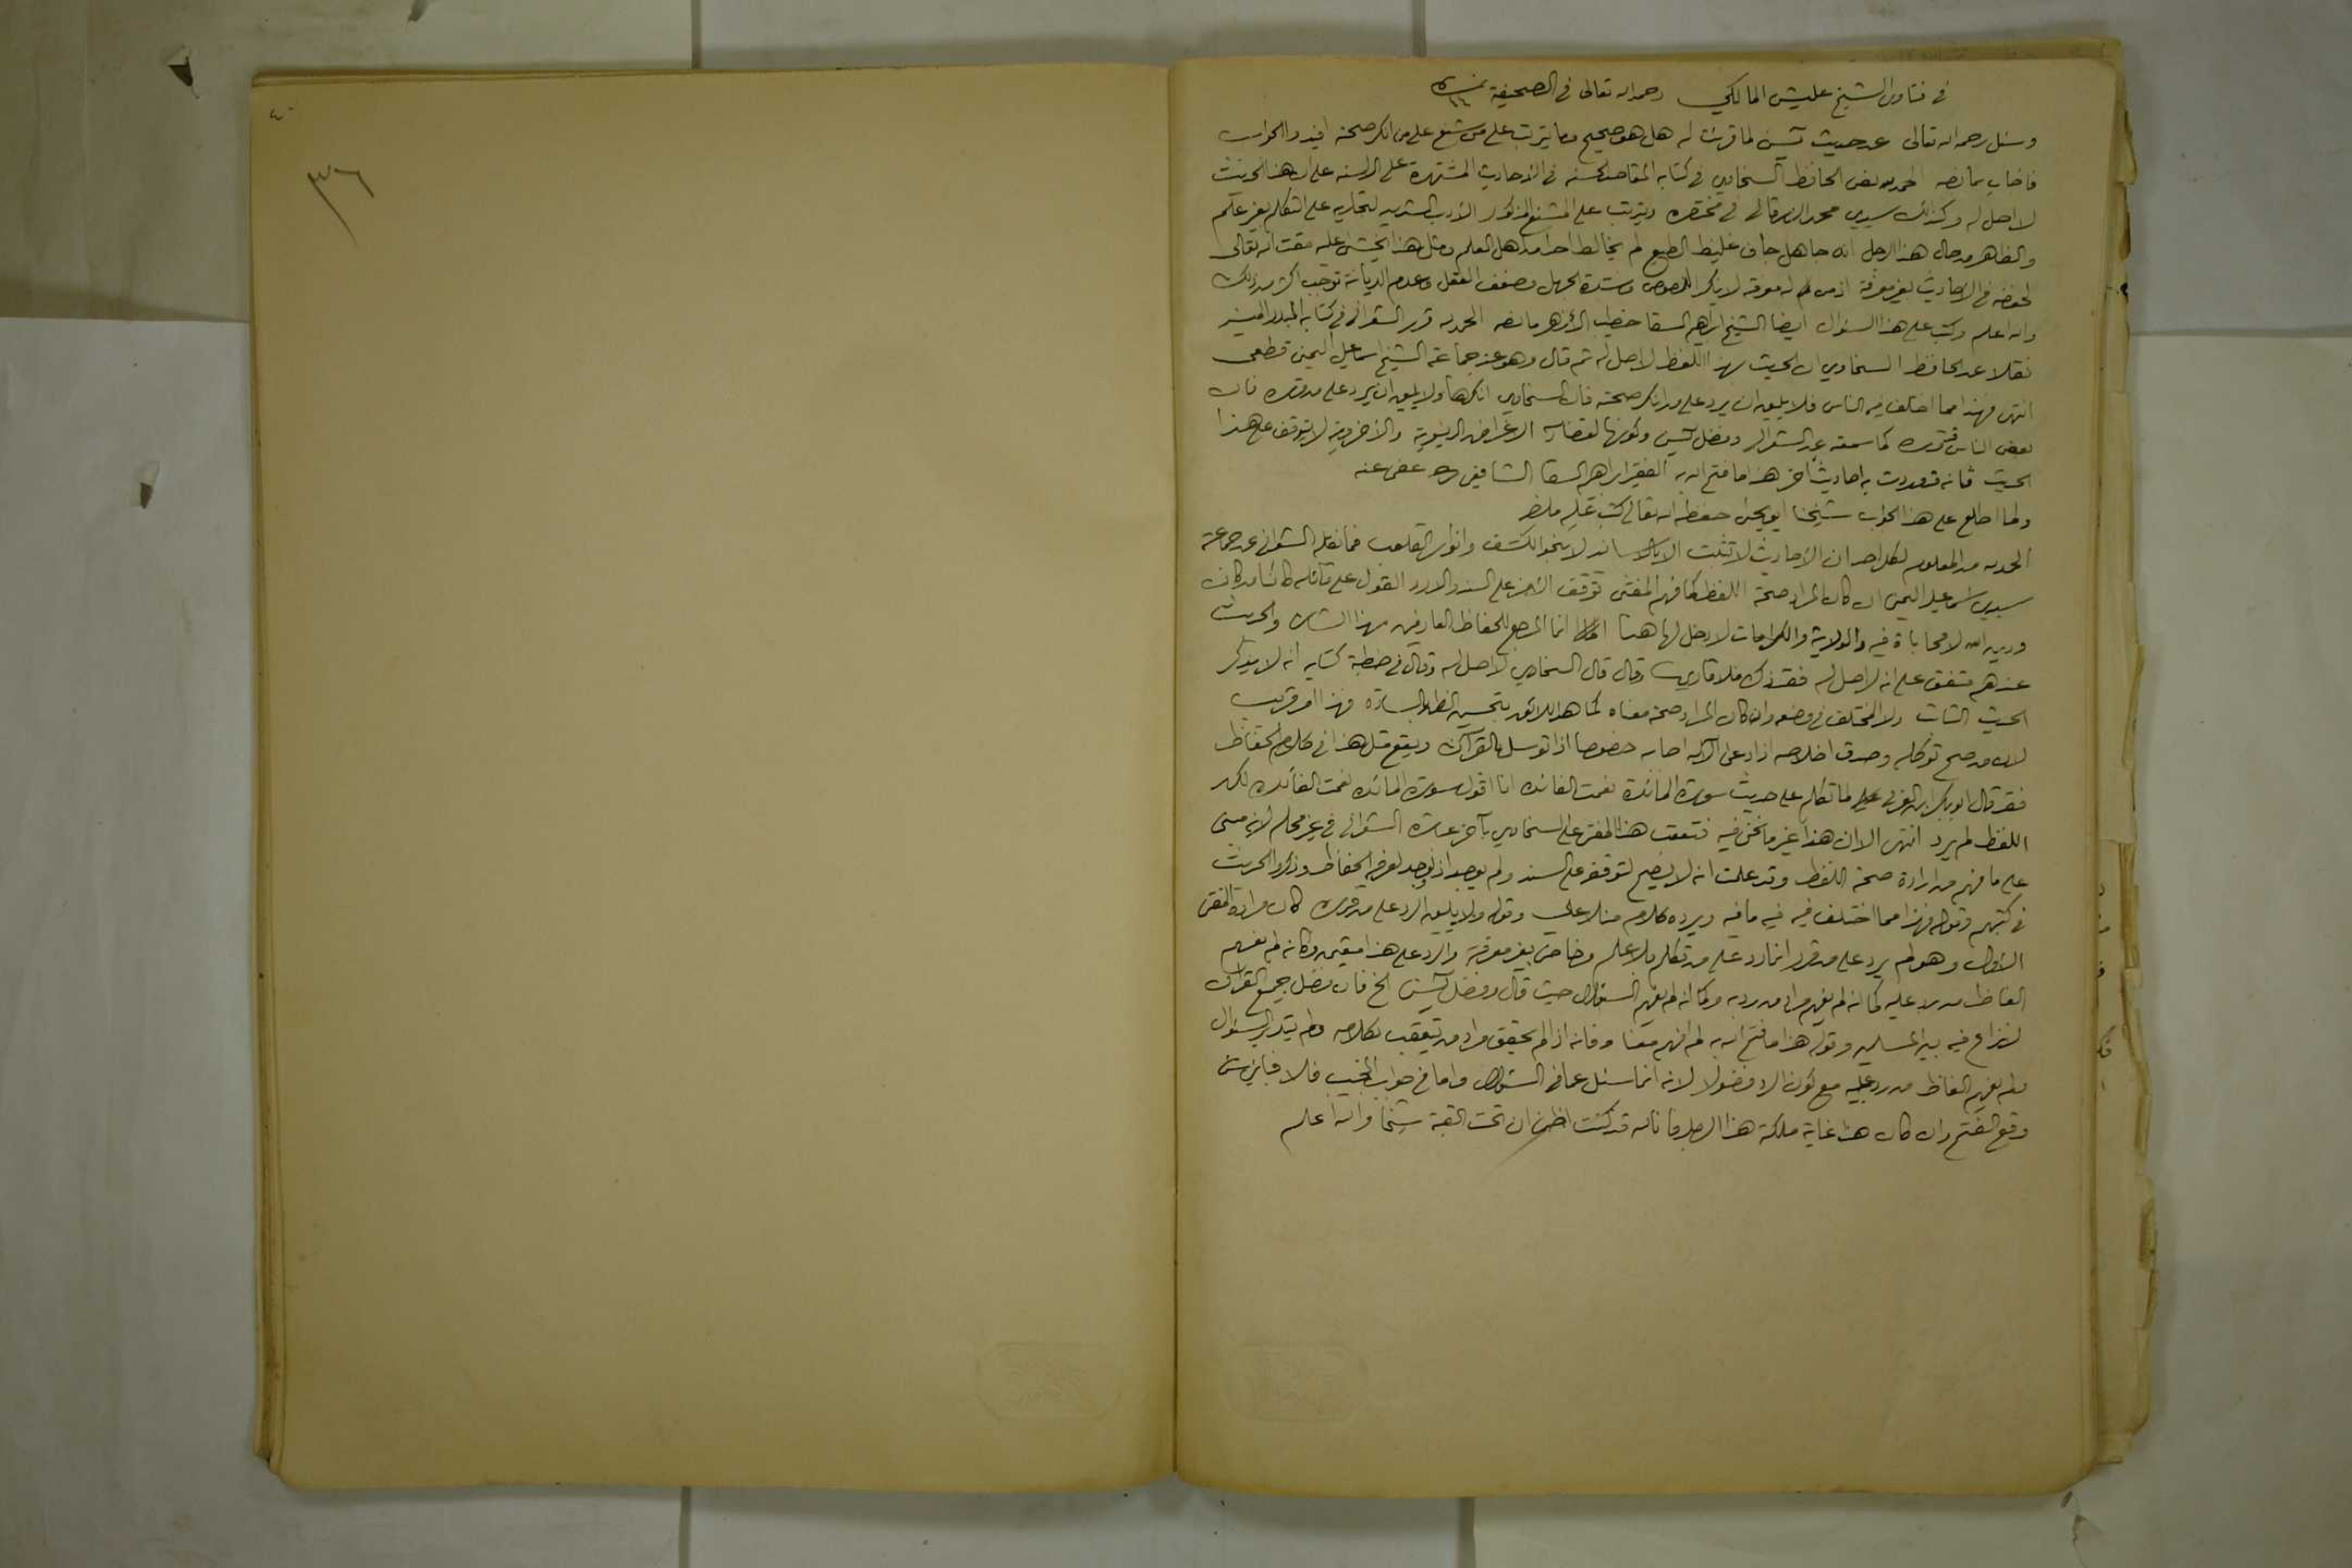 في فتاوى الشيخ عليش المالكي رحمه الله تعالى في الصحيفة
وسئل رحمه الله تعالى عن حديث يس لما قرئت له هل هو صحيح وما يترتب على من شنع على من انكر صحته افيدوا الجواب
فاجاب بما نصه الحمد لله نص الحافظ السخاوي في كتابه المقاصد الحسنه في الأحاديث المشتهرة على الالسنه على ان هذا الحديث
لا اصل له وكذلك سيدي محمد الزرقاني في مختصره ويترتب على المشنع المذكور الأدب الشديد لتجاريه على التكلم بغير علم
والظاهر من حال هذا الرجل انه جاهل جاف غليظ الطبع لم يخالط احدا من اهل العلم ومثل هذا يخشى عليه مقت الله تعالى
لخوضه في الأحاديث بغير معرفة اذ من له معرفة لا ينكر المنصوص وشدة الجهل وضعف العقل وعدم الديانة توجب اكثر من ذلك
والله اعلم وكتب على هذا السؤال ايضا الشيخ ابراهيم السقا خطيب الأزهر ما نصه الحمد لله قرر الشعراني في كتابه البدر المنير
نقلا عن الحافظ السخاوي ان الحديث بهذا اللفظ لا اصل له ثم قال وهو عند جماعة الشيخ اسماعيل اليمني قطعي
انتهى فهذا مما اختلف فيه الناس فلا يليق ان يرد على من انكر صحته فان السخاوي انكرها ولا يليق ان يرد على من قرره فان
بعض الناس قرره كما سمعته عن الشعراني وفضل يس وكونها لقضاء الاغراض الدنيوية والأخروية لا يتوقف على هذا
الحديث فانه قد وردت به احاديث أخر هذا ما فتح الله به الفقير ابراهيم السقا الشافعي عفى عنه
ولما اطلع على هذا الجواب شيخنا ابو يحيى حفظه الله تعالى كتب عليه ما نصه
الحمد لله من المعلوم لكل احد ان الأحاديث لا تثبت الا بالاسانيد لا بنحو الكشف وانوار القلوب فما نقله الشعراني عن جماعة
سيدي اسماعيل اليمني ان كان المراد صحة اللفظ كما فهم المفتي توقف الأمر على السند والا رد القول على قائله كائنا من كان
ودين الله لا محاباة فيه والولاية والكرامات لا دخل لها هنا انما المرجع للحفاظ العارفين بهذا الشان والحديث
عندهم متفق على انه لا اصل له فقد ذكره ملا قاري وقال قال السخاوي لا اصل له وقال في خطبة كتابه انه لا يذكر
الحديث الثابت ولا المختلف في وضعه وان كان المراد صحة معناه كما هو اللائق بتحسين الظن بالسادة فهذا امر قريب
لان من صح توكله وصدق اخلاصه اذا دعى الاله اجابه خصوصا اذا توسل بالقرآن ويقع مثل هذا في كلام الحفاظ
فقد قال ابو بكر ابن العربي لما تكلم على حديث سورة المائدة نعمت الفائدة انا اقول سورة المائدة نعمت الفائدة لكن
اللفظ لم يرد انتهى الا ان هذا غير ما نحن فيه فتعقب هذا المفتي على السخاوي بآخر عبارة الشعراني في غير محله لأنه مبني
على ما فهم من ارادة صحة اللفظ وقد علمت انه لا يصح لتوقفه على السند ولم يوجد اذ لو وجد لعرفه الحفاظ وذكروا الحديث
في كتبهم وقوله فهذا مما اختلف فيه فيه ما فيه ويرده كلام منلا علي وقوله ولا يليق الرد على من قرره كان مراده المفتي
الأول وهو لم يرد على من قرره انما رد على من تكلم بلا علم وخاض بغير معرفة والرد على هذا متعين وكانه لم يفهم
الفاظ من رد عليه كما انه لم يفهم مراد من رد به وكما انه لم يفهم السؤال حيث قال وفضل يس الخ فان فضل جميع القرآن
لا نزاع فيه بين المسلمين وقوله هذا ما فتح الله به لم افهم معناه فانه اذا لم يحقق مراد من تعقب بكلامه ولم يتدبر السؤال
ولم يفهم الفاظ من رد عليه مع كون الرد فضولا لانه انما سئل عما في السؤال واما في جواب المجيب فلا فباي شئ
وقع الفتح وان كان هذا غاية ملكة هذا الرجل فانا لله قد كنت اظن ان تحت القبة شيخا والله اعلم
٤٠
٣٦